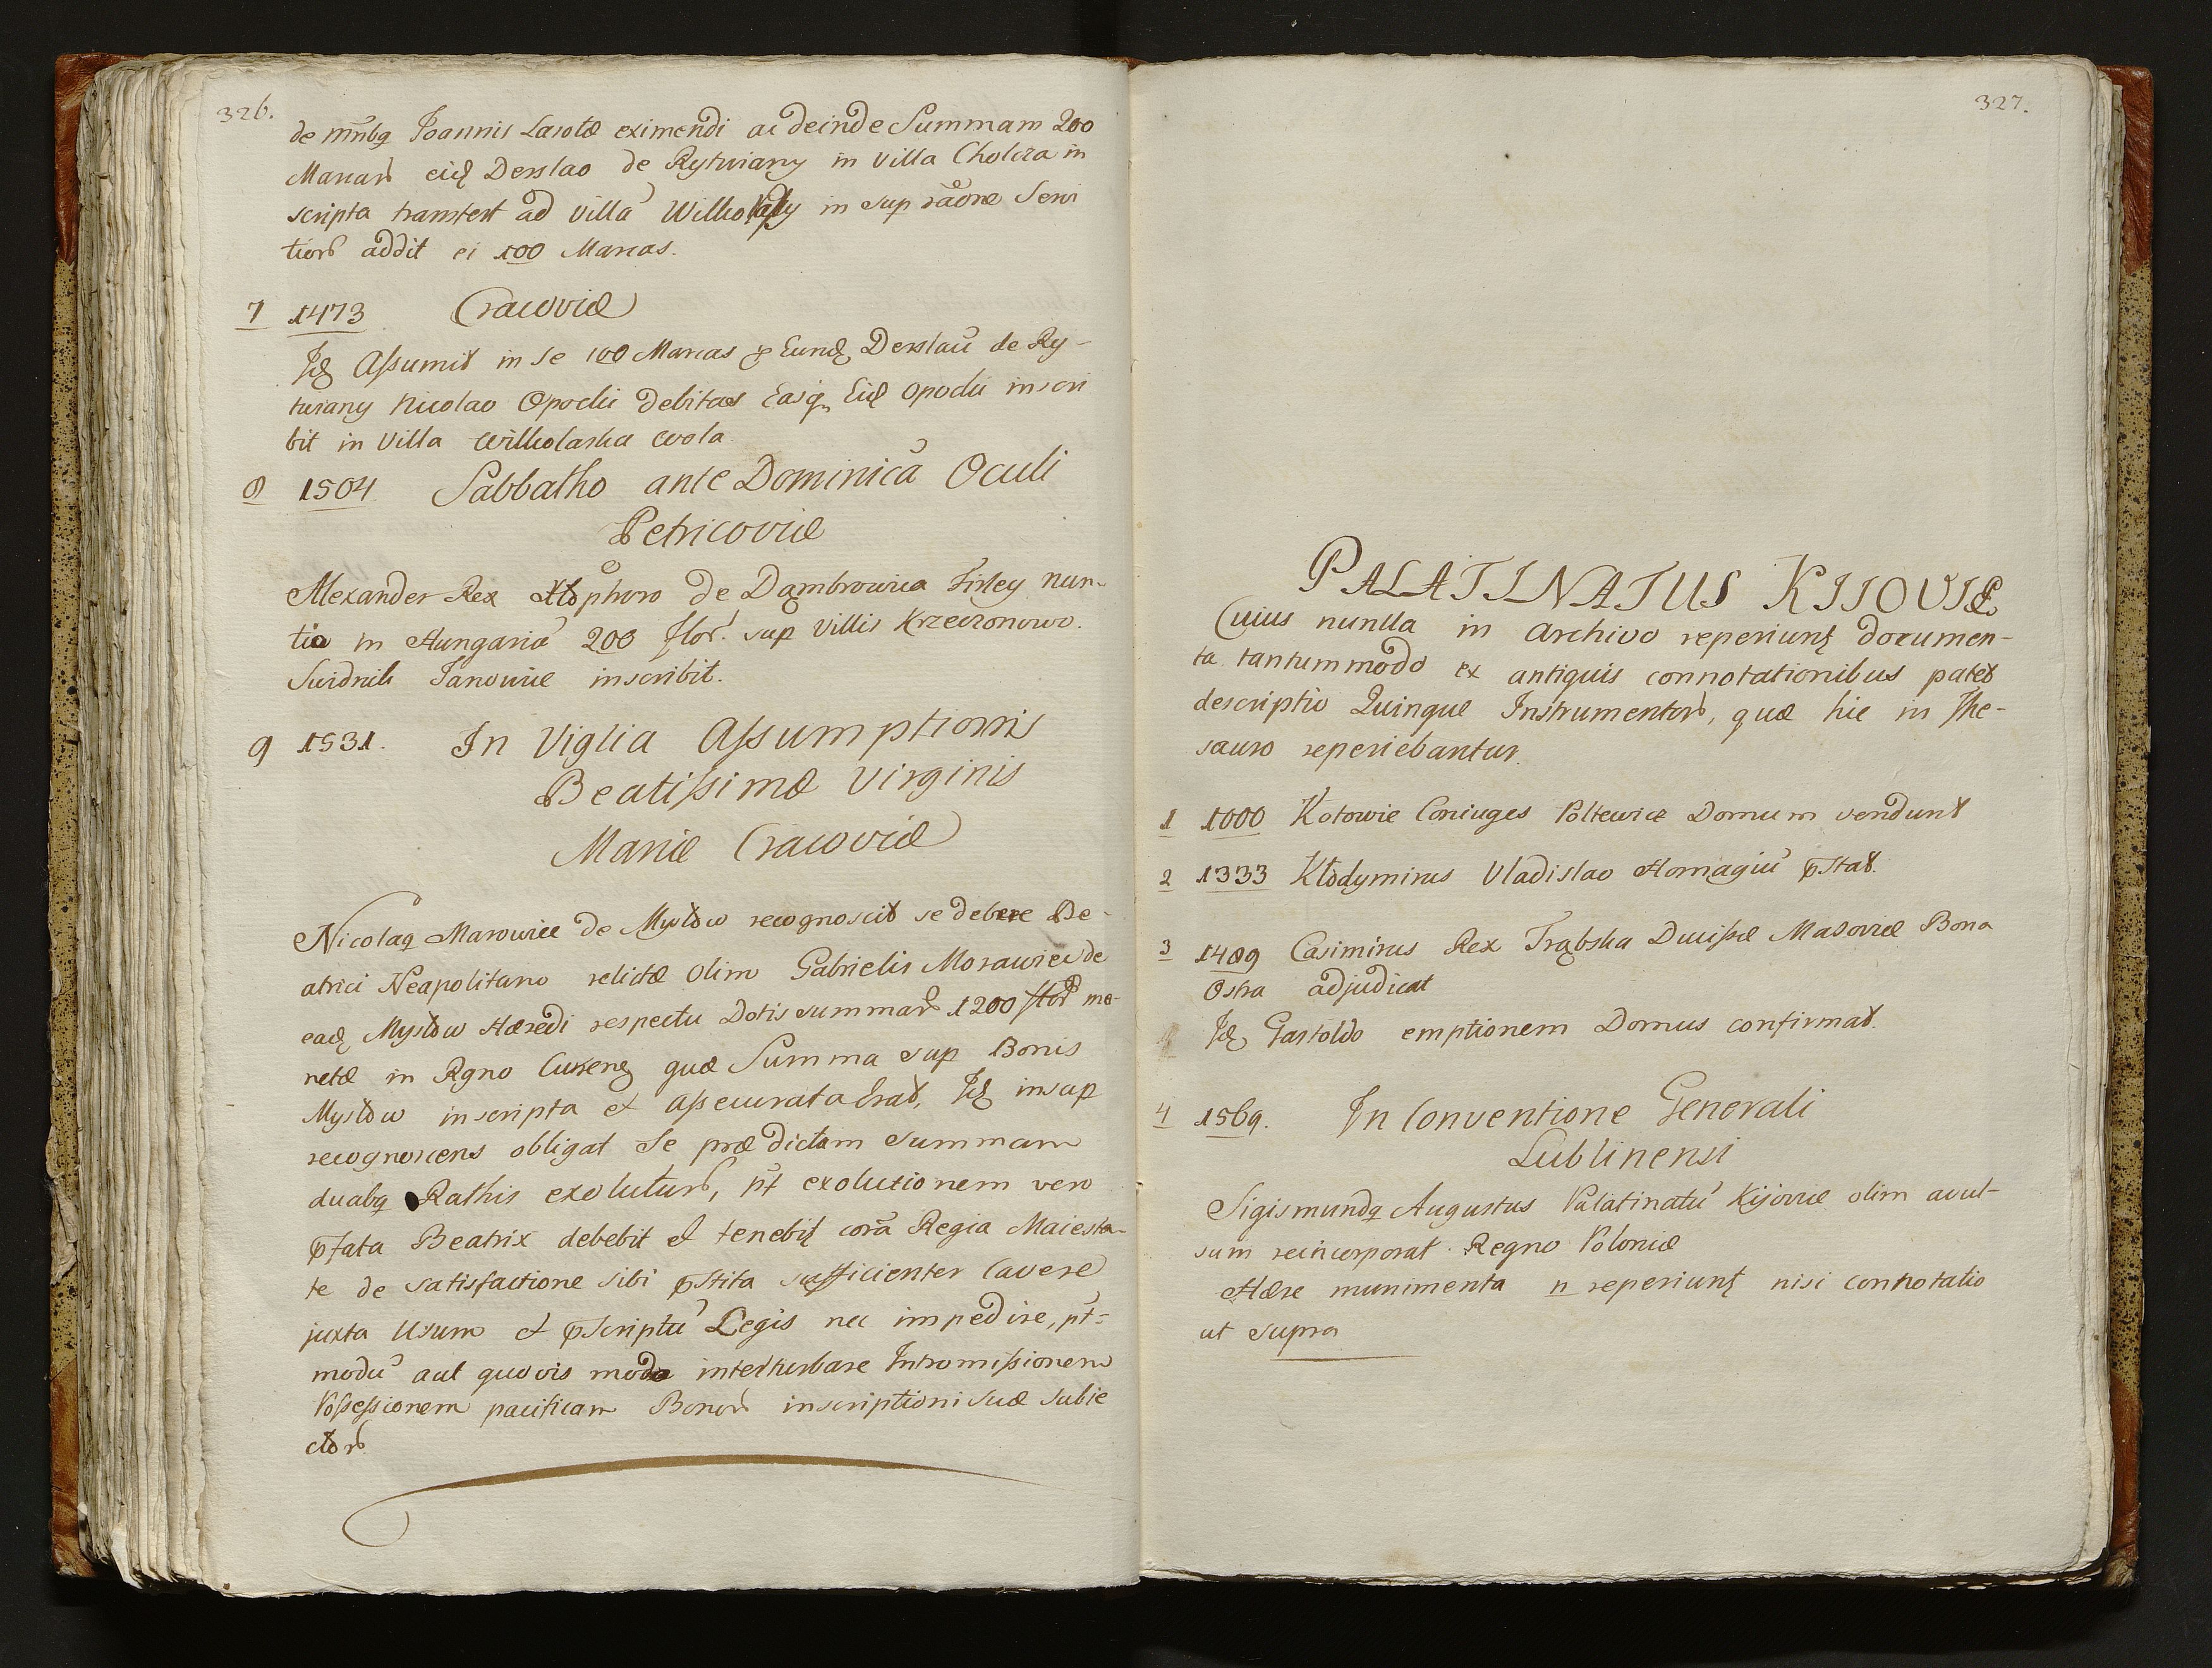 326.
de mñbq Joannis Lasotæ eximendi ac deinde Summam 200
Marcar eid Derslao de Rytwiany in villa Cholcza in
scripta transfert ad villã Wilkolasy in sup rãone Servi
tior addit ei 100 Marcas.
7 1473 Cracoviæ
Jd Assumit in se 100 Marcas p Eund Derslaũ de Ry-
twiany Nicolao Opocki debitas Easq Eid Opocki inscri
bit in Villa Wilkolaska wola
8 1504 Sabbatho ante Dominicã Oculi
Petricoviæ
Alexander Rex Xtophoro de Dąmbrowica Firley nun-
tio in Hungariã 200 flor. sup villis Krzeczonowo.
Swidnik Janowice inscribit.
9 1531. In Viglia Assumptionis
Beatissimæ Virginis
Mariæ Cracoviæ
Nicolaq Marowiec de Mysłow recognoscit se debere Be-
atrici Neapolitano relictæ olim Gabrielis Morawiec de
ead Mysłow Hæredi respectu Dotis summar 1200 flor mo-
netæ in Rgno Curreng quæ Summa sup Bonis
Mysłow inscripta et assecurata Erat, Jd insup
recognoscens obligat se prædictam summam
duabq Rathis exolutur, pt exolutionem vero
pfata Beatrix debebit et tenebit corã Regia Maiesta-
te de satisfactione sibi pstita sufficienter cavere
juxta Usum et pscriptũ Legis nec impedire, pt-
modũ aut quovis modo interturbare Intromissionem
Possessionem pacificam Bonor inscriptioni suæ subie
ctor
327.
PALATINATUS KIJOVIÆ
Cuius nunlla in archivo reperiunt documen-
ta tantummodo ex antiquis connotationibus patet
descriptio Quinque Instrumentor, quæ hic in The-
sauro reperiebantur.
1 1000 Kotowie Coniuges Poltewicz Domum vendunt
2 1333 Kłodymirus Vladislao Homagiũ pstat.
3 1489 Casimirus Rex Trąbska Ducissæ Masoviæ Bona
Ostra adjudicat
Jd Gastoldo emptionem Domus confirmat.
4 1569. In Conventione Generali
Lublinensi
Sigismundq Augustus Palatinatũ Kijoviæ olim avul-
sum reincorporat Regno Poloniæ
Hæc munimenta n reperiunt nisi connotatio
ut supra